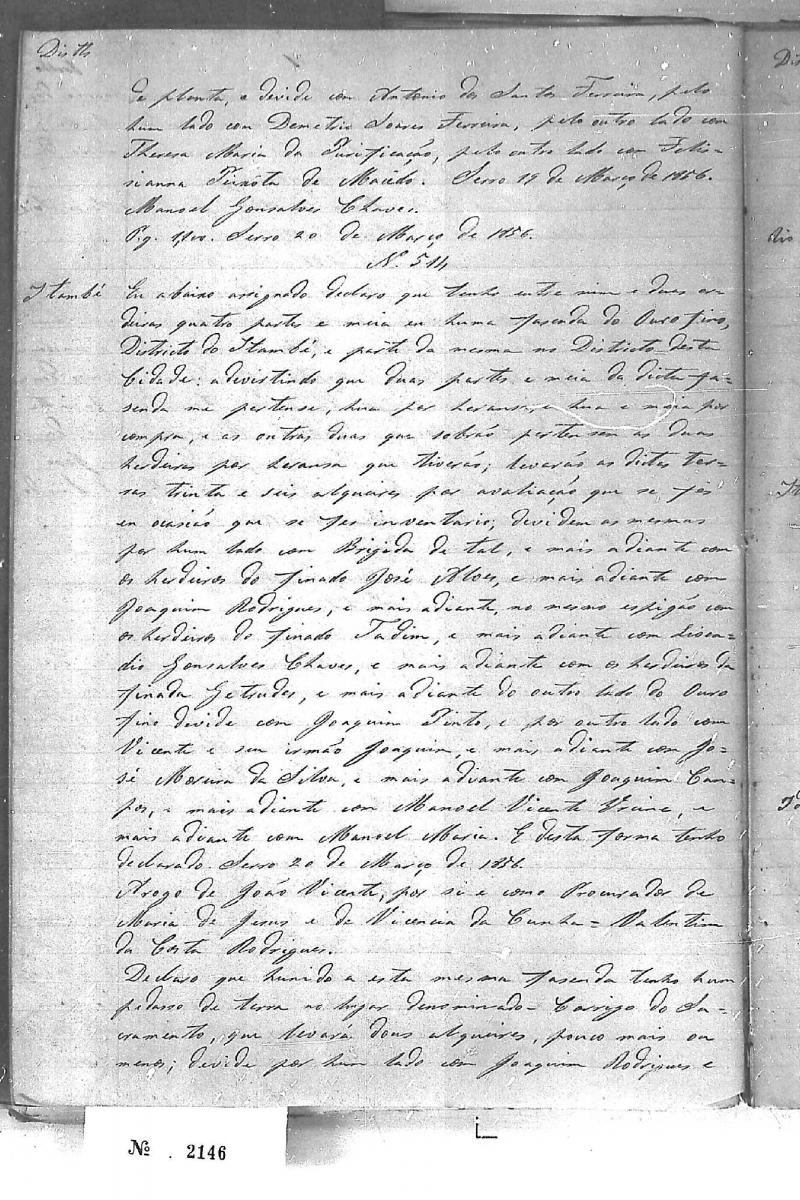 Distto
de planta, e devide com Antonio dos Santos Ferreira, pelo
hum lado com Demetrio Soares Ferreira, pelo outro lado com
Theresa Maria da Purificação, pelo outro lado com Felis-
sianna Teixota de Macedo. Serro 19 de Março de 1856.
Manoel Gonsalves Chaves.
Pg. Serro 20 de Março de 1856.
N. 514
Itambé
Eu abaixo assignado declaro que tenho entre mim e duas er-
deiras quatro partes e meia en huma fasenda do Ouro fino,
Districto do Itambé, e parte da mesma no Districto desta
Cidade: advistindo que duas partes e meia da dicta fa-
senda me pertense, hua por heransa, e hua e meia por
compra, e as outras duas que sobrão pertensem as duas
herdeiras por heransa que tiverão; levarão as dictas ter-
ras trinta e seis alqueires por avaliação que se fes
en ocasião que se fes inventario; devidem as mesmas
por hum lado com Brigida de tal, e mais adiante com
os herdeiros do finado José Alves, e mais adiante com
Joaquim Rodrigues, e mais adiante, no mesmo espigão com
os herdeiros do finado Tadim, e mais adiante com Lisan-
dio Gonsalves Chaves, e mais adiante com os herdeiros da
finada Getrudes, e mais adiante do outro lado do Ouro
fino devide com Joaquim Pinto, e por outro lado com
Vicente e seu irmão Joaquim, e mais adiante com Jo-
sé Moreira da Silva, e mais adiante com Joaquim Cam-
pos, e mais adiante com Manoel Vicente, e
mais adiante com Manoel Maria. E desta forma tenho
declarado. Serro 20 de Março de 1856.
Arogo de João Vicente, por si e como Procurador de
Maria de Jesus e de Vicencia da Cunha = Valentim
da Costa Rodrigues.
Declaro que hunido a esta mesma fasenda tenho hum
pedasso de terra no lugar denominado - Corrigo do Sa-
cramento, que levará dous alqueires, pouco mais ou
menos; devide por hum lado com Joaquim Rodrigues e
№ . 2146